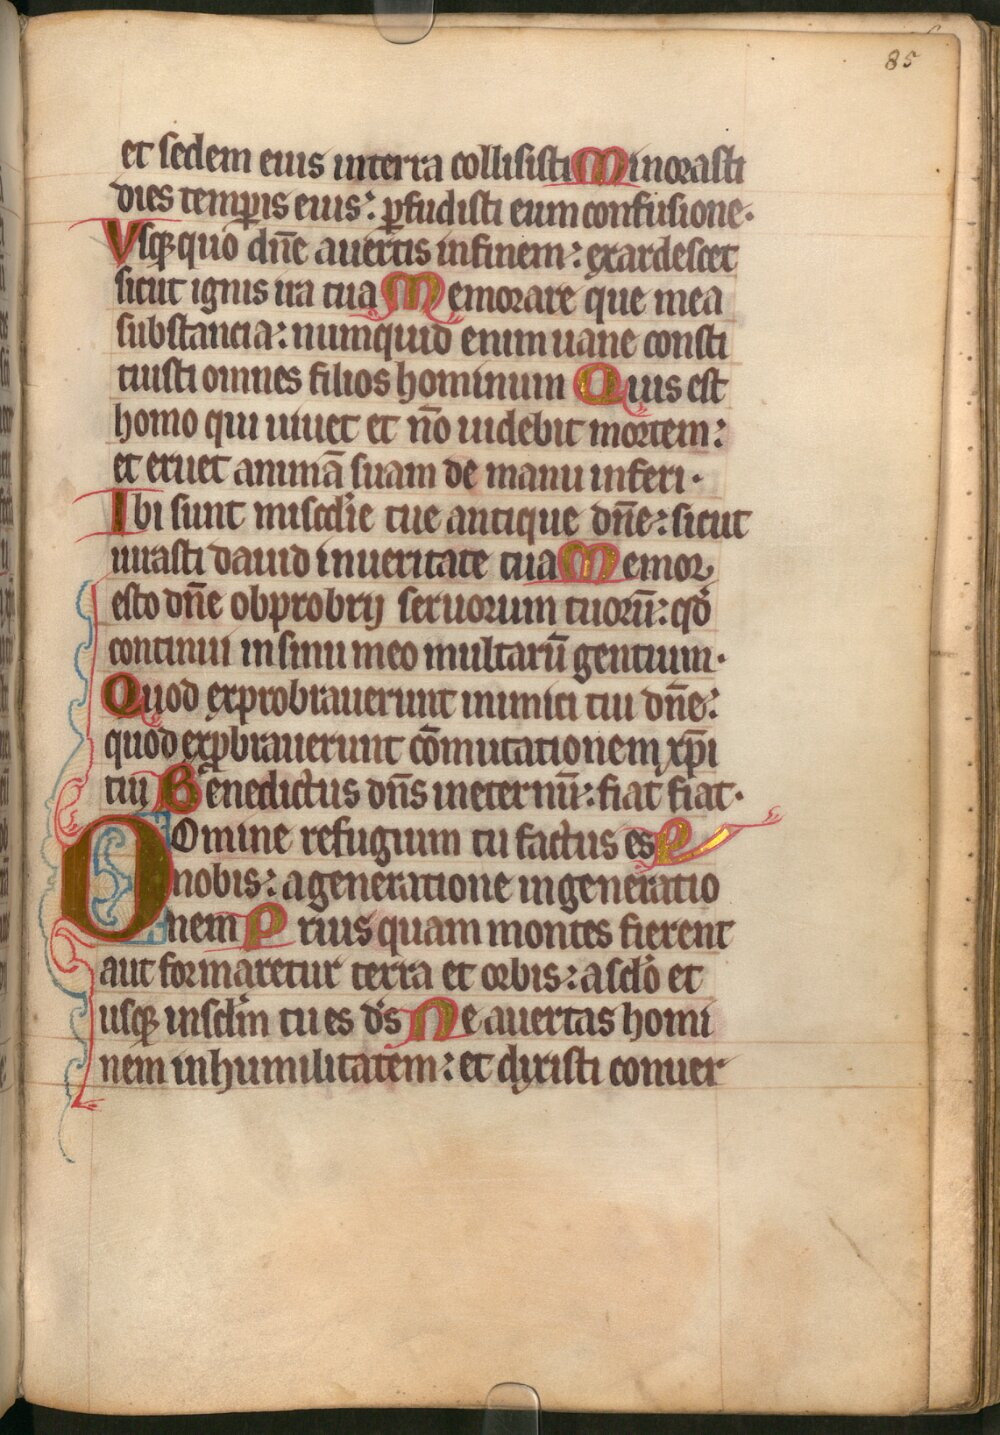 85
et sedem eius interra collisisti Minorasti
dies temꝑis eius: ꝑfudisti eum confusione.
Vsqꝫ quo dn̄e auertis infinem: exardescet
sicut ignis ira tua Memorare que mea
substancia: numquid enim uane consti
tuisti omnes filios hominum Quis est
homo qui uiuet et nō uidebit mortem:
et eruet animā suam de manu inferi.
Ibi sunt miscd̓ie tue antique dn̄e: sicut
iurasti dauid inueritate tua Memor
esto dn̄e obprobrij seruorum tuorū: qd̓
continui insinu meo multarū gentium.
Quod exprobrauerunt inimici tui dn̄e:
quod exꝓbrauerunt cōmutationem xp̄i
tui Benedictus dn̄s ineternū: fiat fiat.
Domine refugium tu factus es
nobis: ageneratione ingeneratio
nem Prius quam montes fierent
aut formaretur terra et orbis: ascl̓o et
usqꝫ inscl̓m tu es d̓s Ne auertas homi
nem inhumilitatem: et dixisti conuer